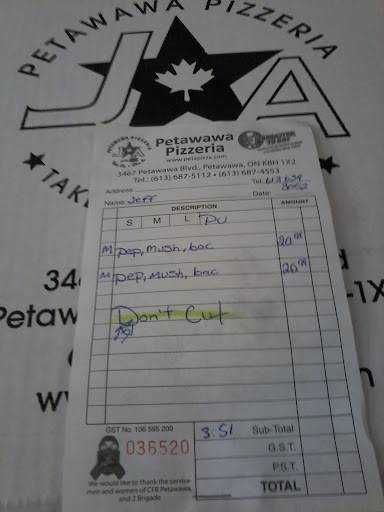 PETAWAWA PIZZERIA
J A
TAK
PETAWAWA PIZZERIA
Petawawa
Pizzeria
www.petapizza.com
3467 Petawawa Blvd., Petawawa, ON K8H 1X2
Tel.: (613) 687-5112 • (613) 687-4553
Address Tel: 613 639
Name: Jeff Date:
DESCRIPTION AMOUNT
S M L PU
M pep, mush, bac 20
M pep, mush, bac 20
Don't Cut
GST No. 106 595 200
036520
3:51 Sub-Total
G.S.T.
P.S.T.
TOTAL
We would like to thank the service
men and women of CFB Petawawa,
and 2 Brigade
34
Petaw
w
d
-1X